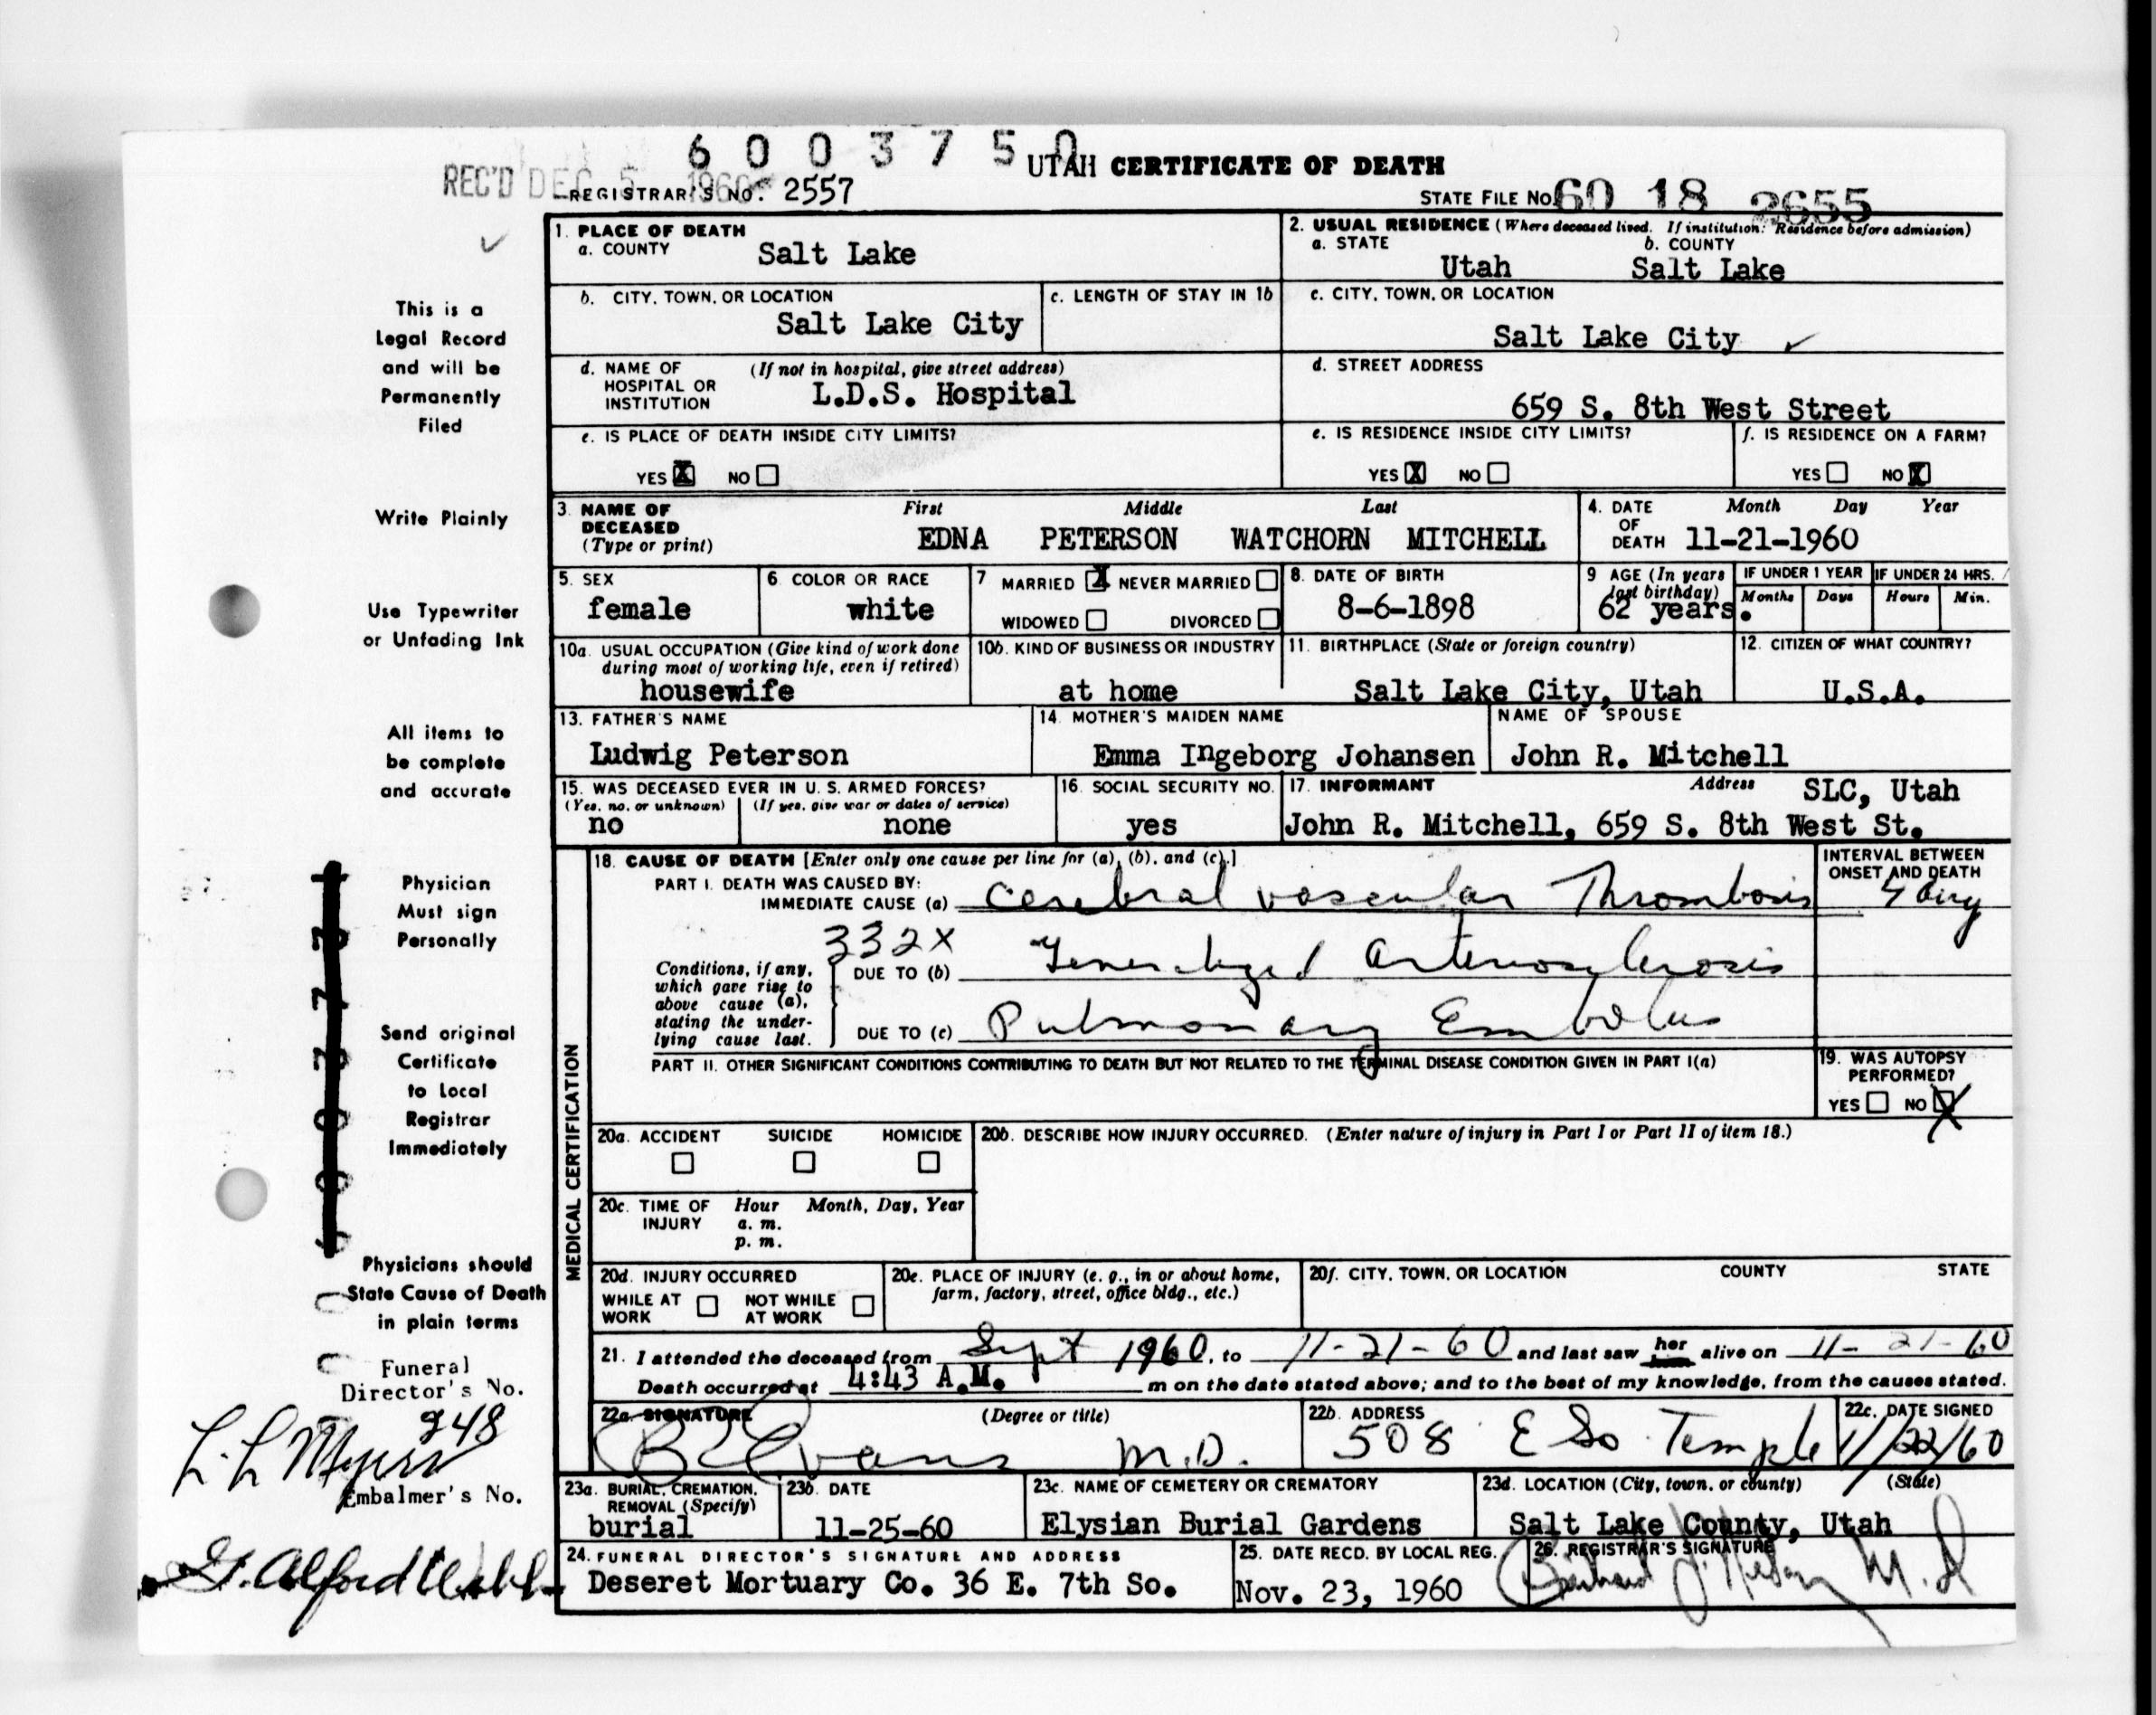 6 0 0 3 7 5 0
UTAH CERTIFICATE OF DEATH
REC'D DEC 5 1960
REGISTRAR'S No. 2557
STATE FILE No. 60 18 2655
1. PLACE OF DEATH
a. COUNTY Salt Lake
2. USUAL RESIDENCE (Where deceased lived. If institution: Residence before admission)
a. STATE Utah b. COUNTY Salt Lake
b. CITY, TOWN, OR LOCATION Salt Lake City
c. LENGTH OF STAY IN 1b
c. CITY, TOWN, OR LOCATION
Salt Lake City
d. NAME OF HOSPITAL OR INSTITUTION (If not in hospital, give street address)
L.D.S. Hospital
d. STREET ADDRESS
659 S. 8th West Street
e. IS PLACE OF DEATH INSIDE CITY LIMITS?
YES X NO
e. IS RESIDENCE INSIDE CITY LIMITS?
YES X NO
f. IS RESIDENCE ON A FARM?
YES NO X
3. NAME OF DECEASED (Type or print)
First Middle Last
EDNA PETERSON WATCHORN MITCHELL
4. DATE OF DEATH Month Day Year
11-21-1960
5. SEX
female
6. COLOR OR RACE
white
7 MARRIED X NEVER MARRIED
WIDOWED DIVORCED
8. DATE OF BIRTH
8-6-1898
9 AGE (In years last birthday)
62 years.
IF UNDER 1 YEAR
Months Days
IF UNDER 24 HRS.
Hours Min.
10a. USUAL OCCUPATION (Give kind of work done during most of working life, even if retired)
housewife
10b. KIND OF BUSINESS OR INDUSTRY
at home
11. BIRTHPLACE (State or foreign country)
Salt Lake City, Utah
12. CITIZEN OF WHAT COUNTRY?
U.S.A.
13. FATHER'S NAME
Ludwig Peterson
14. MOTHER'S MAIDEN NAME
Emma Ingeborg Johansen
NAME OF SPOUSE
John R. Mitchell
15. WAS DECEASED EVER IN U. S. ARMED FORCES?
(Yes, no, or unknown) (If yes, give war or dates of service)
no none
16. SOCIAL SECURITY NO.
yes
17. INFORMANT Address SLC, Utah
John R. Mitchell, 659 S. 8th West St.
MEDICAL CERTIFICATION
18. CAUSE OF DEATH [Enter only one cause per line for (a), (b), and (c).]
INTERVAL BETWEEN ONSET AND DEATH
PART I. DEATH WAS CAUSED BY:
IMMEDIATE CAUSE (a) Cerebral vascular Thrombosis
332X
Conditions, if any, which gave rise to above cause (a), stating the underlying cause last.
DUE TO (b) Generalized Arteriosclerosis
DUE TO (c) Pulmonary Embolus
PART II. OTHER SIGNIFICANT CONDITIONS CONTRIBUTING TO DEATH BUT NOT RELATED TO THE TERMINAL DISEASE CONDITION GIVEN IN PART I(a)
19. WAS AUTOPSY PERFORMED?
YES NO X
20a. ACCIDENT SUICIDE HOMICIDE
20b. DESCRIBE HOW INJURY OCCURRED. (Enter nature of injury in Part I or Part II of item 18.)
20c. TIME OF INJURY Hour Month, Day, Year
a. m.
p. m.
20d. INJURY OCCURRED
WHILE AT WORK NOT WHILE AT WORK
20e. PLACE OF INJURY (e. g., in or about home, farm, factory, street, office bldg., etc.)
20f. CITY, TOWN, OR LOCATION COUNTY STATE
21. I attended the deceased from Sept 1960, to 11-21-60 and last saw her alive on 11-21-60
Death occurred at 4:43 A.M. m on the date stated above; and to the best of my knowledge, from the causes stated.
22a. SIGNATURE (Degree or title)
Evans M.D.
22b. ADDRESS
508 E So Temple
22c. DATE SIGNED
11/22/60
23a. BURIAL, CREMATION, REMOVAL (Specify)
burial
23b. DATE
11-25-60
23c. NAME OF CEMETERY OR CREMATORY
Elysian Burial Gardens
23d. LOCATION (City, town, or county) (State)
Salt Lake County, Utah
24. FUNERAL DIRECTOR'S SIGNATURE AND ADDRESS
Deseret Mortuary Co. 36 E. 7th So.
25. DATE RECD. BY LOCAL REG.
Nov. 23, 1960
26. REGISTRAR'S SIGNATURE
M.D
This is a
Legal Record
and will be
Permanently
Filed
Write Plainly
Use Typewriter
or Unfading Ink
All items to
be complete
and accurate
Physician
Must sign
Personally
Send original
Certificate
to Local
Registrar
Immediately
Physicians should
State Cause of Death
in plain terms
Funeral
Director's No.
248
L. L. Myers
Embalmer's No.
G. Alford Webb